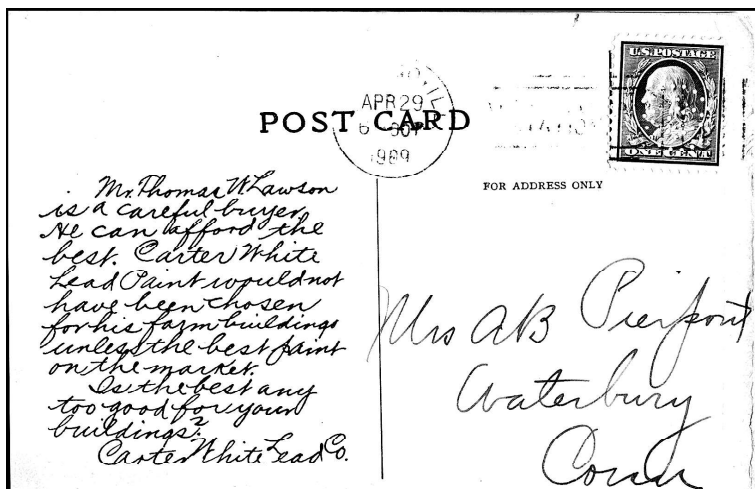 U.S. POSTAGE
ONE CENT
APR 29
1909
POST CARD
FOR ADDRESS ONLY
Mr. Thomas W Lawson
is a careful buyer.
He can afford the
best. Carter White
Lead Paint would not
have been chosen
for his farm buildings
unless the best paint
on the market.
Is the best any
too good for your
buildings?
Carter White Lead Co.
Mrs AB Pierpont
Waterbury
Conn